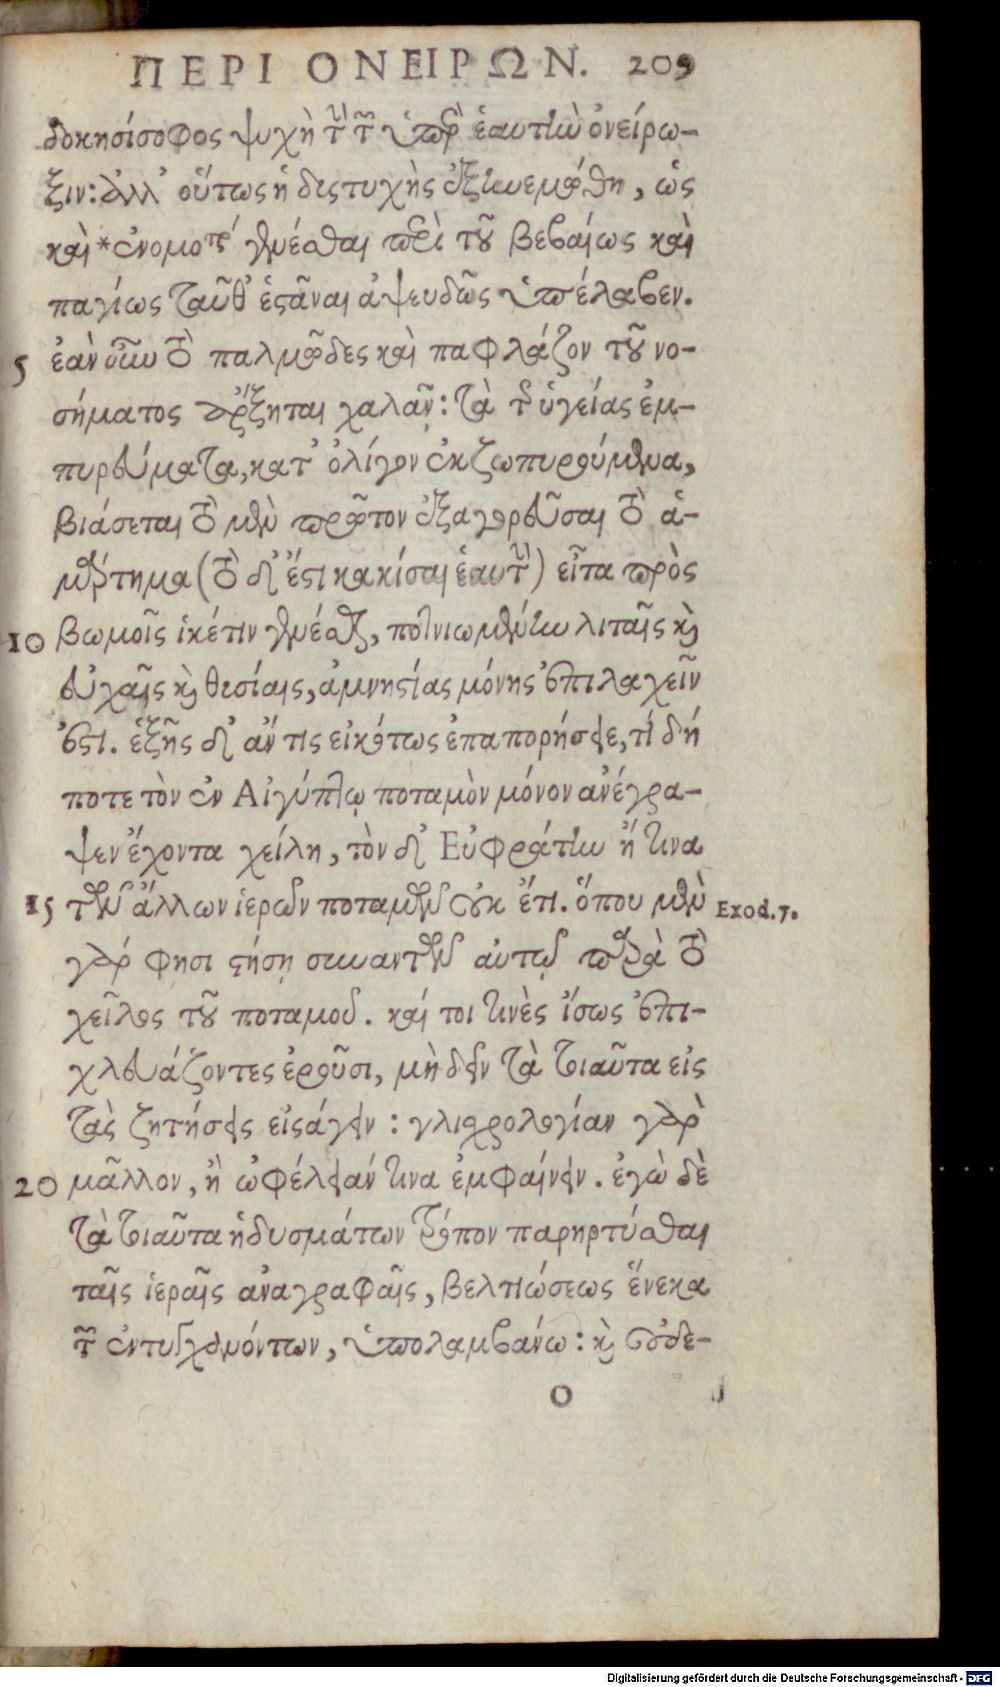 ΠΕΡΙ ΟΝΕΙΡΩΝ. 209
δοκησίσοφος ψυχὴ τὴν τῶν ὑπὲρ ἑαυτὴν ὀνείρω-
ξιν: ἀλλ' οὕτως ἡ δυστυχὴς ἐξηνεμώθη, ὡς
καὶ * γενέσθαι περὶ τοῦ βεβαίως καὶ
παγίως ταῦθ' ἑστᾶναι ἀψευδῶς ὑπέλαβεν.
5 ἐὰν οὖν τὸ παλμῶδες καὶ παφλάζον τοῦ νο-
σήματος ἄρξηται χαλᾶν: τὰ τῆς ὑγείας ἐμ-
πυρεύματα, κατ' ὀλίγον ἐκζωπυρούμενα,
βιάσεται τὸ μὲν πρῶτον ἐξαγορεῦσαι τὸ ἁ-
μάρτημα (τὸ δ' ἔστι κακίσαι ἑαυτὴν) εἶτα πρὸς
10 βωμοῖς ἱκέτιν γενέσθαι, ποτνιωμένην λιταῖς καὶ
εὐχαῖς καὶ θυσίαις, ἀμνηστίας μόνης ἐπιλαχεῖν
ἔστι. ἑξῆς δ' ἄν τις εἰκότως ἐπαπορήσειε, τί δή
ποτε τὸν ἐν Αἰγύπτῳ ποταμὸν μόνον ἀνέγρα-
ψεν ἔχοντα χείλη, τὸν δ' Εὐφράτην ἤ τινα
15 τῶν ἄλλων ἱερῶν ποταμῶν οὐκ ἔτι. ὅπου μὲν Exod. 7.
γάρ φησι στήσῃ συναντῶν αὐτῷ παρὰ τὸ
χεῖλος τοῦ ποταμοῦ. καί τοι τινὲς ἴσως ἐπι-
χλευάζοντες ἐροῦσι, μὴ δεῖν τὰ τοιαῦτα εἰς
τὰς ζητήσεις εἰσάγειν: γλισχρολογίαν γὰρ
20 μᾶλλον, ἢ ὠφέλειάν τινα ἐμφαίνειν. ἐγὼ δὲ
τὰ τοιαῦτα ἡδυσμάτων τρόπον παρηρτύσθαι
ταῖς ἱεραῖς ἀναγραφαῖς, βελτιώσεως ἕνεκα
τῶν ἐντυγχανόντων, ὑπολαμβάνω: καὶ οὐδε-
O
Digitalisierung gefördert durch die Deutsche Forschungsgemeinschaft - DFG